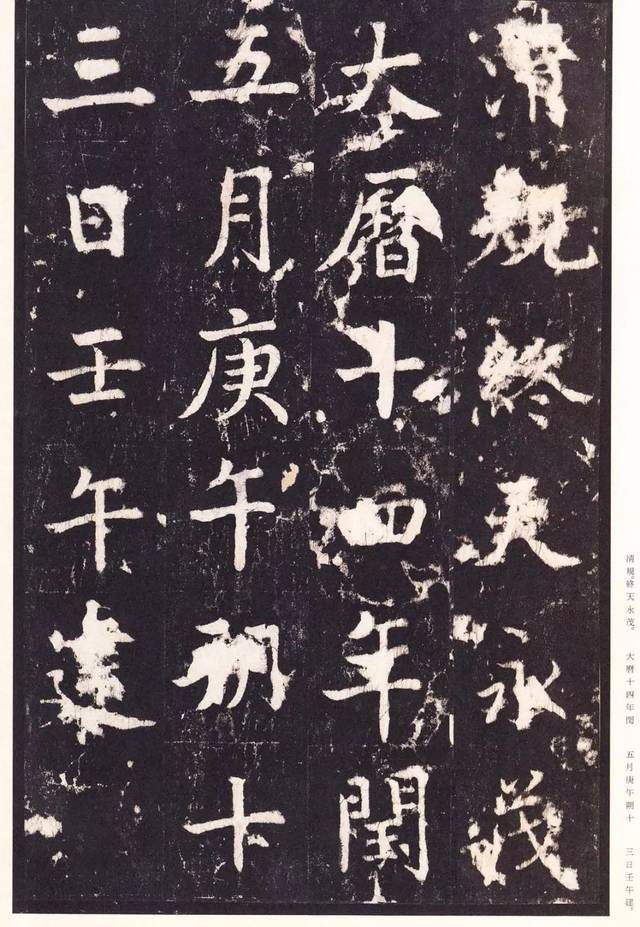 清規終天永茂
大曆十四年閏
五月庚午朔十
三日壬午建
清規。終天永茂。 大曆十四年閏 五月庚午朔十 三日壬午建。